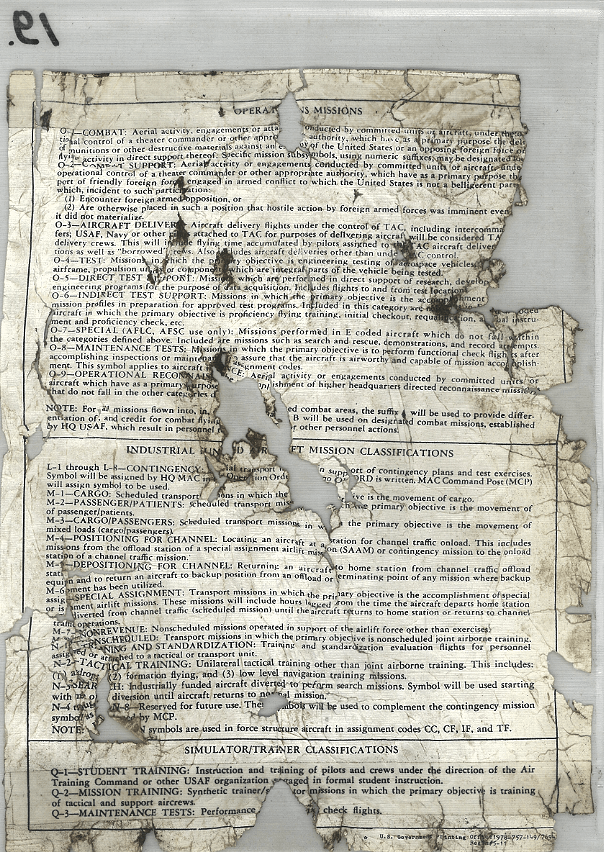 19.
OPERAT NS MISSIONS
O-1—COMBAT: Aerial activity, engagements or atta conducted by committed units or aircraft, under the
tional control of a theater commander or other appro authority, which has as a primary purpose the
of munitions or other destructive materials against an y of the United States or an opposing foreign force or
flying activity in direct support thereof. Specific mission subsymbols, using numeric suffixes, may be designated
O-2— SUPPORT: Aerial activity or engagements conducted by committed units or aircraft
operational control of a theater commander or other appropriate authority, which have as a primary purpose
port of friendly foreign for engaged in armed conflict to which the United States is not a belligerent party
which, incident to such participation:
(1) Encounter foreign armed opposition, or
(2) Are otherwise placed in such a position that hostile action by foreign armed forces was imminent even
it did not materialize.
O-3—AIRCRAFT DELIVER Aircraft delivery flights under the control of TAC, including intercomma
fers; USAF, Navy or other attached to TAC for purposes of delivering aircraft will be considered T
delivery crews. This will flying time accumulated by pilots assigned to AC aircraft deliv
tions as well as "borrowed Also includes aircraft deliveries other than under C control.
O-4—TEST: Missions in w ry objective is engineering testing of aerospace vehicles
airframe, propulsion or component which are integral parts of the vehicle being tested.
O-5—DIRECT TEST SUPPORT: Missions which are performed in direct support of research, develop
engineering programs for the purpose of data acquisition. Include flights to and from test location
O-6—INDIRECT TEST SUPPORT: Missions in which the primary objective is the accom
mission profiles in preparation for approved test programs. Included in this category are
in which the primary objective is proficiency flying training, initial checkout, requalification
ment and proficiency check, etc.
O-7—SPECIAL (AFLC, AFSC use only): Missions performed in E coded aircraft which do not fall within
the categories defined above. Included are missions such as search and rescue, demonstrations, and record attempts
O-8—MAINTENANCE TESTS: M which the primary objective is to perform functional check flights after
accomplishing inspections or mainten assure that the aircraft is airworthy and capable of mission accomplish
ment. This symbol applies to aircraft gnment codes.
O-9—OPERATIONAL RECONNA CE: Aerial activity or engagements conducted by committed units or
aircraft which have as a primary purpose lishment of higher headquarters directed reconnaissance missions
that do not fall in the other categories
NOTE: For all missions flown into, in ed combat areas, the suffix will be used to provide differ-
entiation of and credit for combat flying B will be used on designated combat missions, established
by HQ USAF, which result in personnel other personnel actions.
INDUSTRIAL FUNDED AIRCRAFT MISSION CLASSIFICATIONS
L-1 through L-8—CONTINGENCY: transport n support of contingency plans and test exercises.
Symbol will be assigned by HQ MAC Operation Ord RD is written. MAC Command Post (MCP)
will assign symbol to be used.
M-1—CARGO: Scheduled transport ions in which the ve is the movement of cargo.
M-2—PASSENGER/PATIENTS: Scheduled transport mis primary objective is the movement
of passenger/patients.
M-3—CARGO/PASSENGERS: Scheduled transport missions in w the primary objective is the movement of
mixed loads (cargo/passengers).
M-4—POSITIONING FOR CHANNEL: Locating an aircraft at a station for channel traffic onload. This includes
missions from the offload station of a special assignment airlift mis n (SAAM) or contingency mission to the onload
station of a channel traffic mission.
M-5—DEPOSITIONING FOR CHANNEL: Returning an aircraft to home station from channel traffic offload
stat and to return an aircraft to backup position from an offload or terminating point of any mission where backup
equipment has been utilized.
M-6—SPECIAL ASSIGNMENT: Transport missions in which the primary objective is the accomplishment of special
assignment airlift missions. These missions will include hours logged from the time the aircraft departs home station
or is diverted from channel traffic (scheduled mission) until the aircraft returns to home station or returns to channel
traffic operations.
M-7—NONREVENUE: Nonscheduled missions operated in support of the airlift force other than exercises.
NSCHEDULED: Transport missions in which the primary objective is nonscheduled joint airborne training.
NING AND STANDARDIZATION: Training and standardization evaluation flights for personnel
assigned or attached to a tactical or transport unit.
N-2—TACTICAL TRAINING: Unilateral tactical training other than joint airborne training. This includes:
(1) (2) formation flying, and (3) low level navigation training missions.
N-3—SEARCH: Industrially funded aircraft diverted to perform search missions. Symbol will be used starting
with an diversion until aircraft returns to normal mission.
N-4 N-8—Reserved for future use. These symbols will be used to complement the contingency mission
symbol used by MCP.
NOTE: N symbols are used in force structure aircraft in assignment codes CC, CF, IF, and TF.
SIMULATOR/TRAINER CLASSIFICATIONS
Q-1—STUDENT TRAINING: Instruction and training of pilots and crews under the direction of the Air
Training Command or other USAF organization engaged in formal student instruction.
Q-2—MISSION TRAINING: Synthetic trainer/s tor missions in which the primary objective is training
of tactical and support aircrews.
Q-3—MAINTENANCE TESTS: Performance check flights.
U.S. Government Printing Office: 1978-757-149/